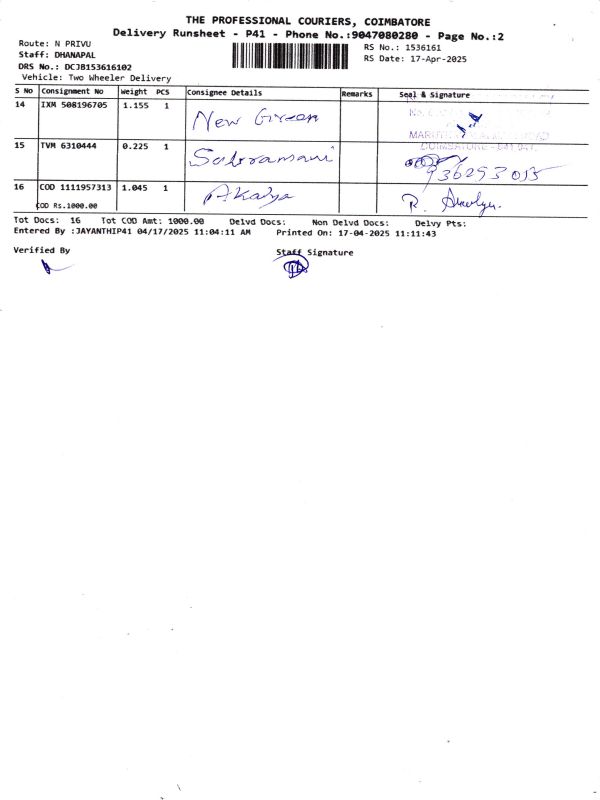 THE PROFESSIONAL COURIERS, COIMBATORE
Delivery Runsheet - P41 - Phone No.:9047080280 - Page No.:2
Route: N PRIVU
RS No.: 1536161
Staff: DHANAPAL
RS Date: 17-Apr-2025
DRS No.: DCJB153616102
Vehicle: Two Wheeler Delivery
S No Consignment No Weight PCS Consignee Details Remarks Seal & Signature
14 IXM 508196705 1.155 1 New Green
15 TVM 6310444 0.225 1 Subramani
16 COD 1111957313 1.045 1 Akalya R.
COD Rs.1000.00
Tot Docs: 16 Tot COD Amt: 1000.00 Delvd Docs: Non Delvd Docs: Delvy Pts:
Entered By :JAYANTHIP41 04/17/2025 11:04:11 AM Printed On: 17-04-2025 11:11:43
Verified By Staff Signature